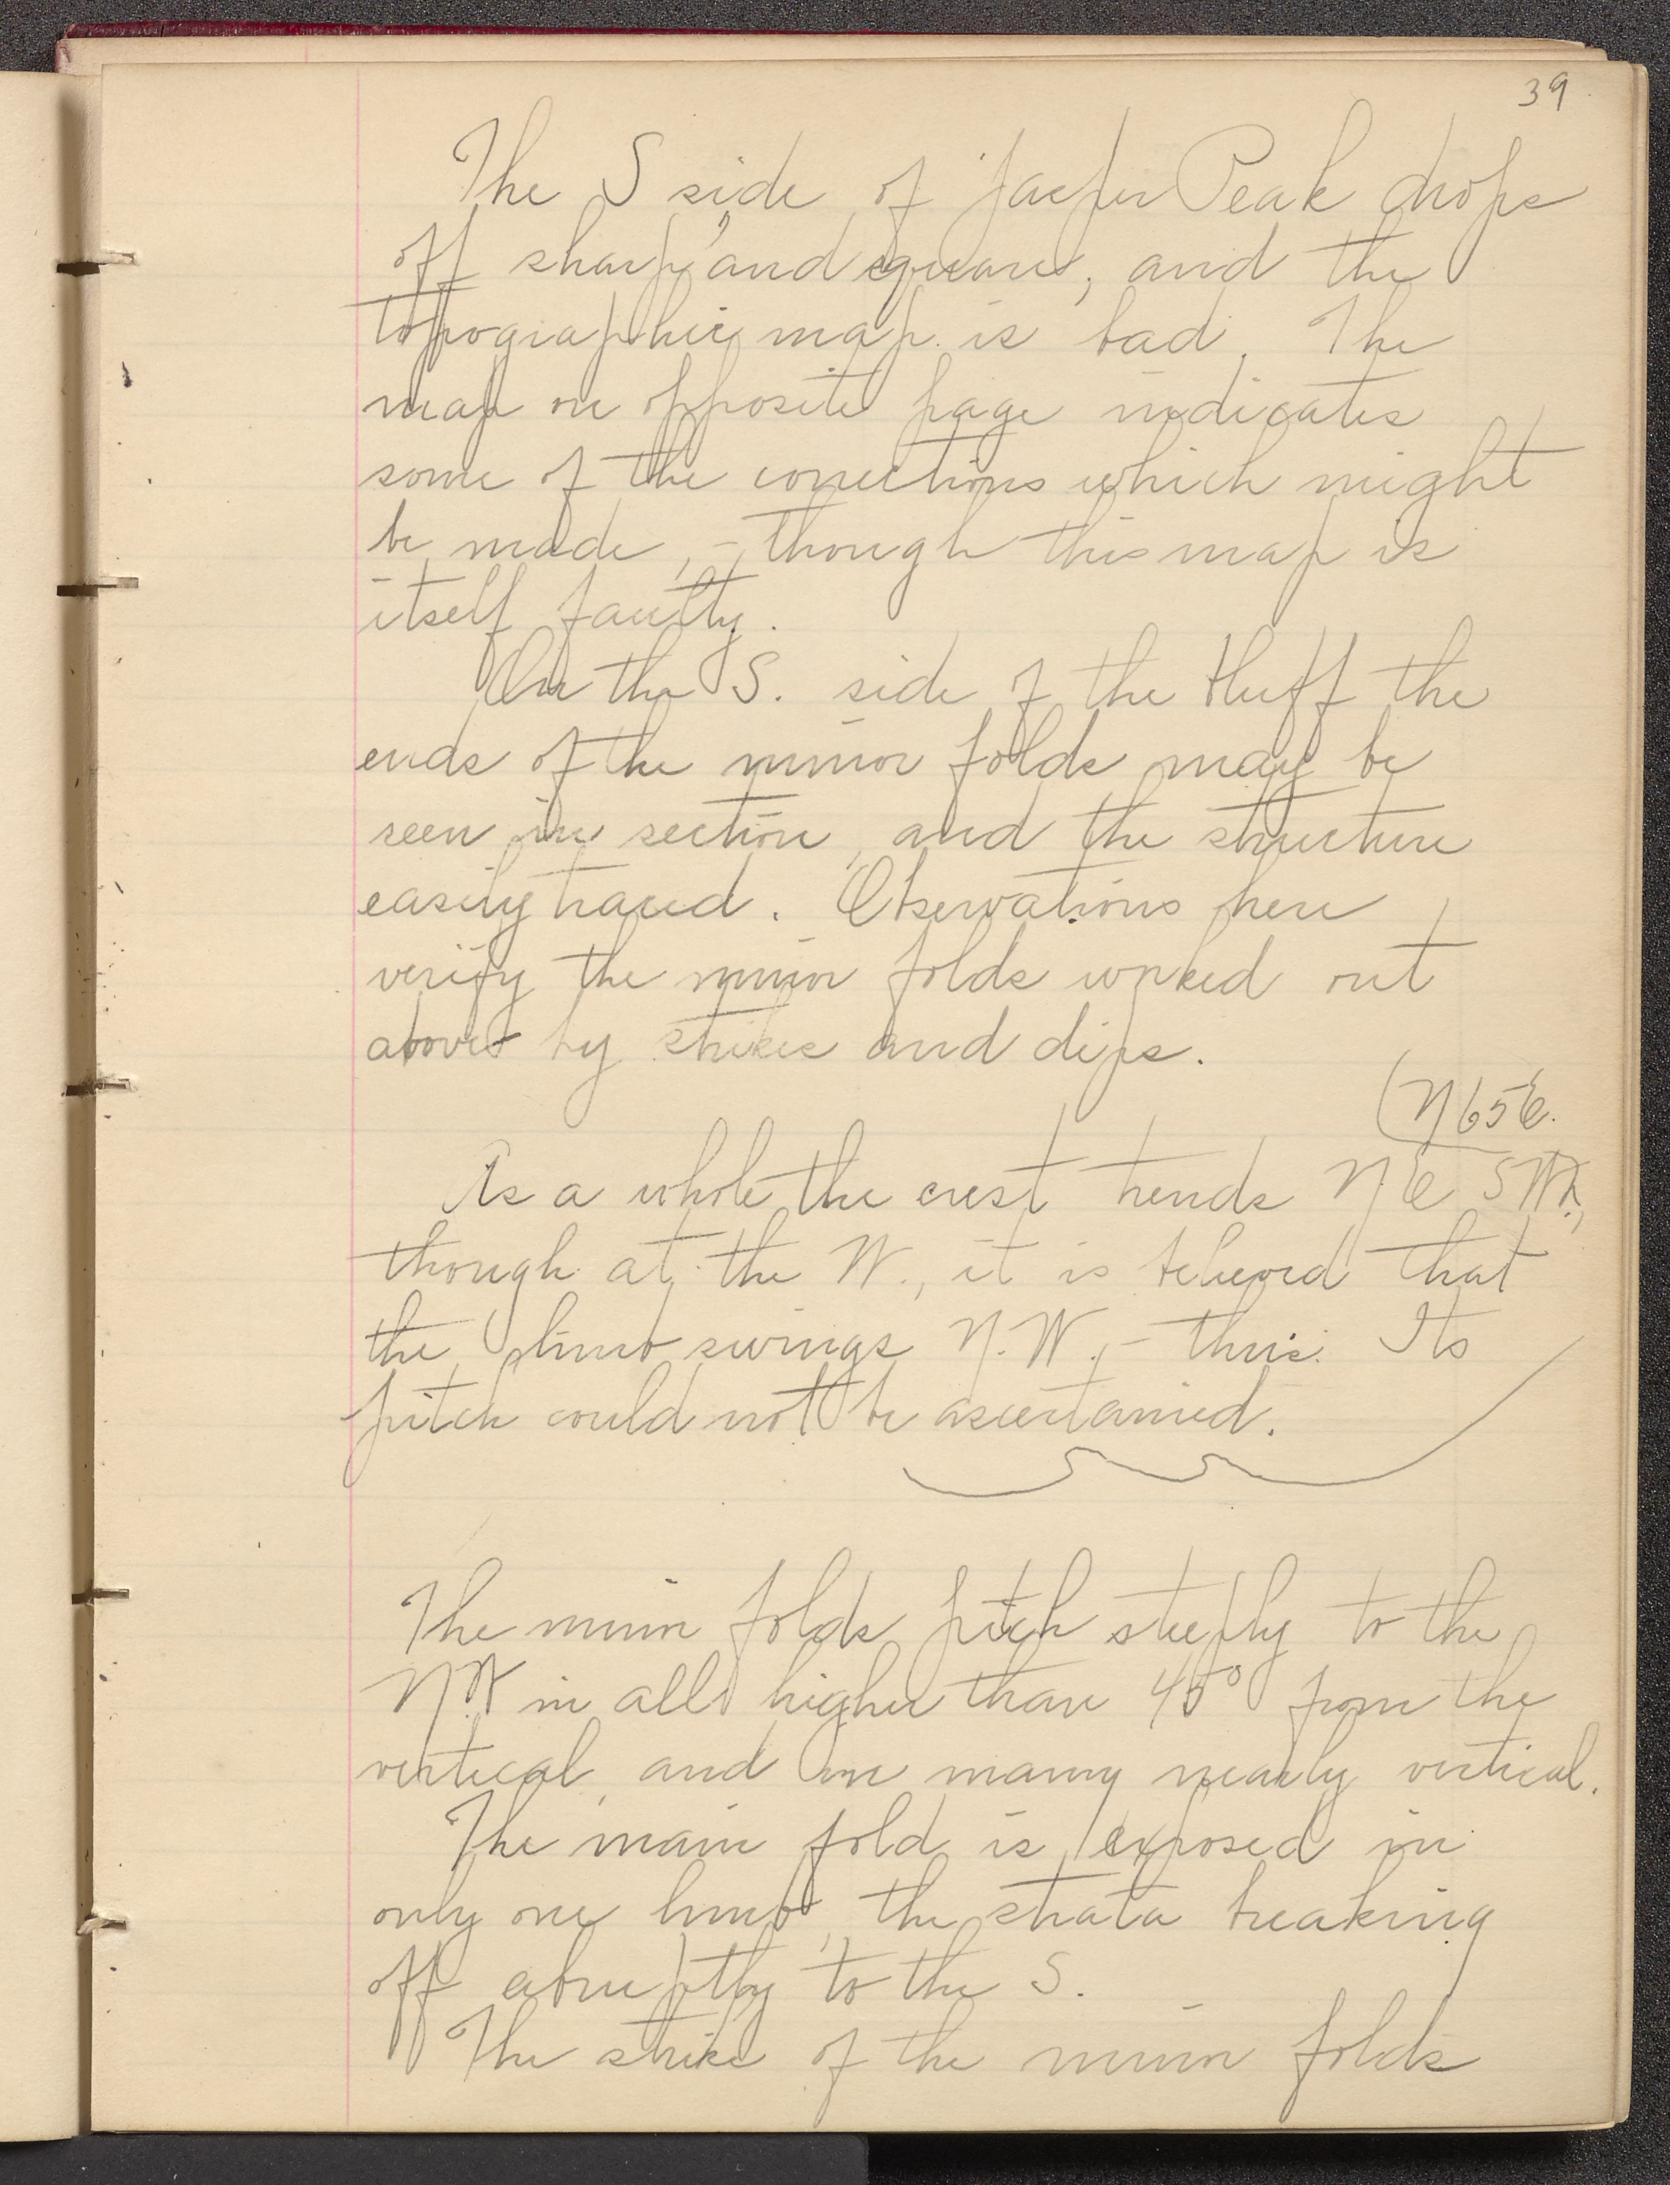 39
The S side of Jasper Peak drops
off sharp, and square, and the
topographic map is bad. The
map on opposite page indicates
some of the corrections which might
be made, - though this map is
itself faulty.
On the S. side of the bluff the
ends of the minor folds may be
seen in section, and the structure
easily traced. Observations here
verify the minor folds worked out
above by strikes and dips.
(N65E.
As a whole the crest trends NE SW.,
though at the W., it is believed that
the limb swings N.W., - thus. Its
pitch could not be ascertained.
The minor folds pitch steeply to the
N.W in all higher than 45° from the
vertical, and in many nearly vertical.
The main fold is exposed in
only one limb, the strata breaking
off abruptly to the S.
The strike of the minor folds